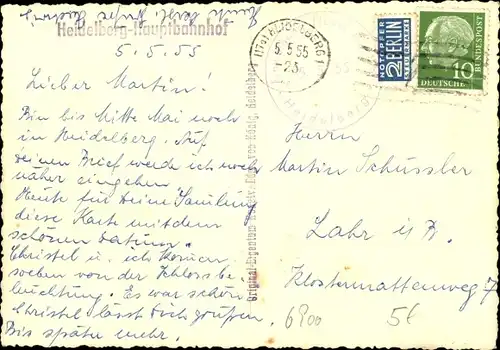 Heidelberg-Hauptbahnhof
5.5.55
Lieber Martin.
Bin bis Mitte Mai noch
in Heidelberg. Auf
deinen Brief werde ich noch
näher eingehen
Heute für deine Samlung
diese Karte mit dem
schönen Datum.
Christel u. ich kommen
soeben von der Schlossbe-
leuchtung. Es war schön
Christel lässt dich grüßen.
Bis später mehr.
(17a) HEIDELBERG 1
5.5.55
-23
Heidelberg
NOTOPFER
2 BERLIN
STEUERMARKE
DEUTSCHE
BUNDESPOST
10
Herrn
Martin Schüssler
Lahr i/B.
Klostermattenweg 7
6900
5€